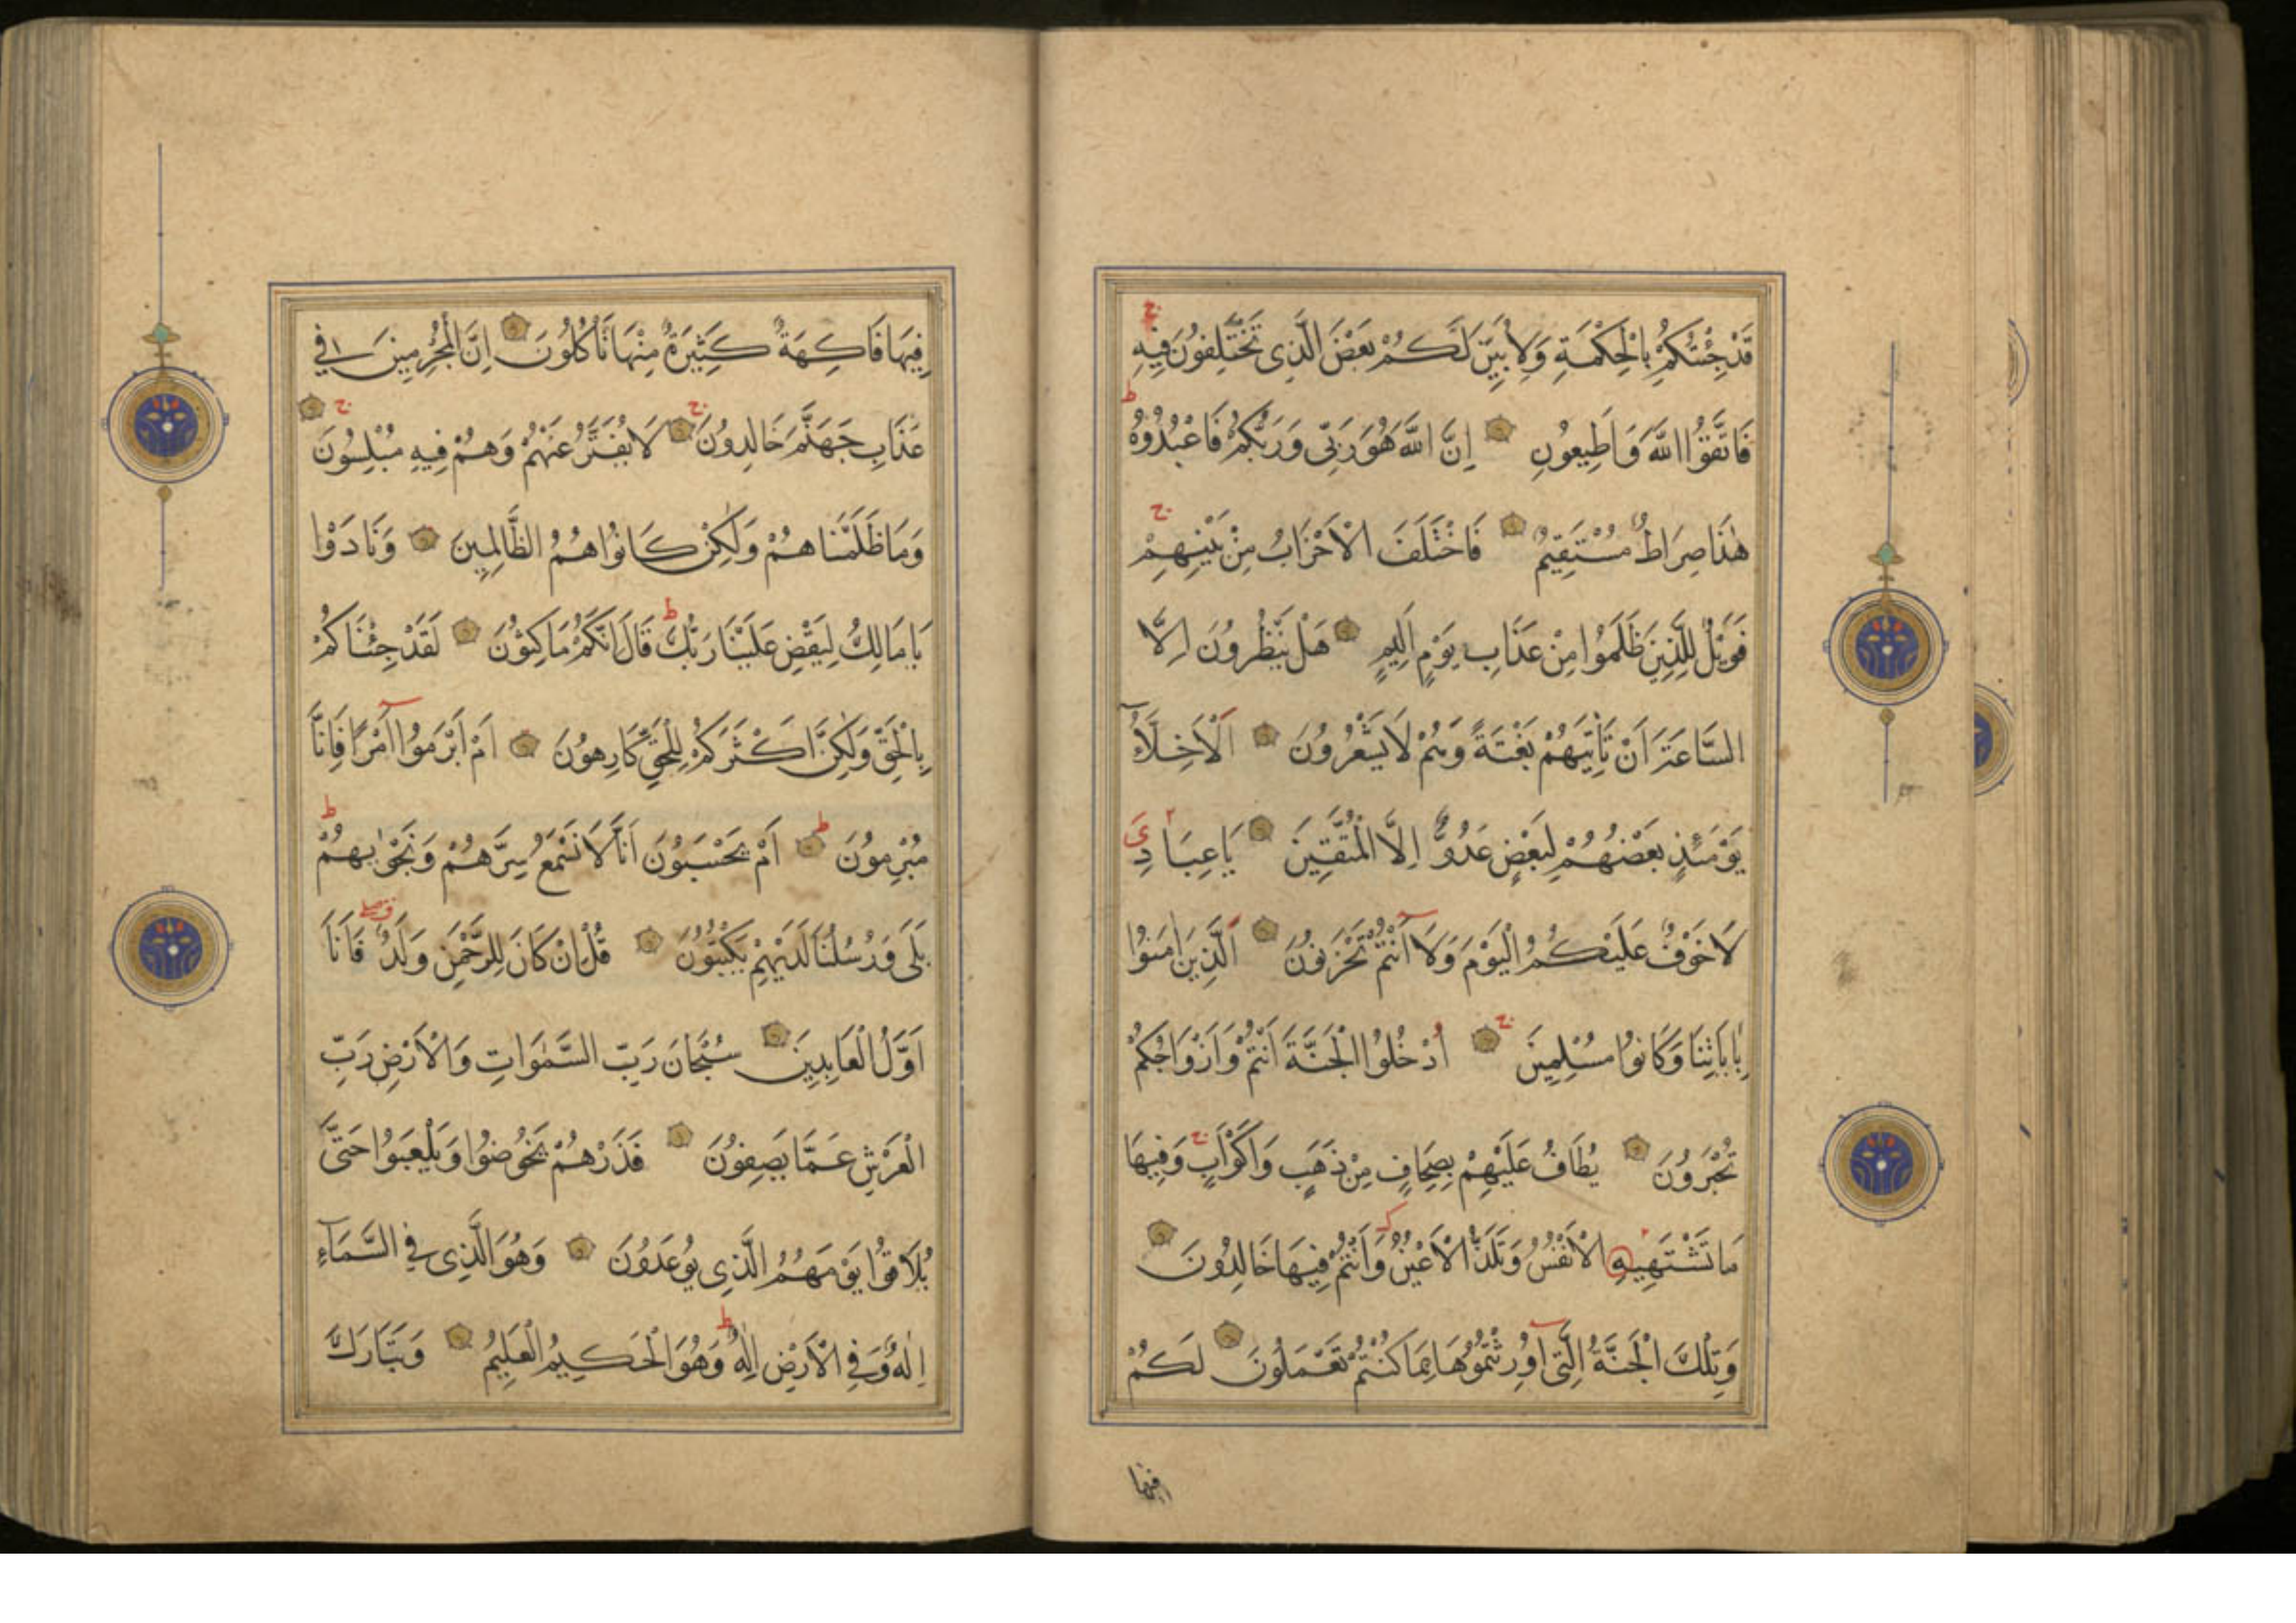 قَدْ جِئْتُكُمْ بِالْحِكْمَةِ وَلِأُبَيِّنَ لَكُمْ بَعْضَ الَّذِى تَخْتَلِفُونَ فِيهِ ج
فَاتَّقُوا اللَّهَ وَاَطِيعُونِ اِنَّ اللَّهَ هُوَ رَبِّى وَرَبُّكُمْ فَاعْبُدُوهُ ط
هٰذَا صِرَاطٌ مُسْتَقِيمٌ فَاخْتَلَفَ الْاَحْزَابُ مِنْ بَيْنِهِمْ ج
فَوَيْلٌ لِلَّذِينَ ظَلَمُوا مِنْ عَذَابِ يَوْمٍ اَلِيمٍ هَلْ يَنْظُرُونَ اِلَّا
السَّاعَةَ اَنْ تَأْتِيَهُمْ بَغْتَةً وَهُمْ لَا يَشْعُرُونَ اَلْاَخِلَّآءُ
يَوْمَئِذٍ بَعْضُهُمْ لِبَعْضٍ عَدُوٌّ اِلَّا الْمُتَّقِينَ يَا عِبَادِ ىَ
لَا خَوْفٌ عَلَيْكُمُ الْيَوْمَ وَلَا اَنْتُمْ تَحْزَنُونَ اَلَّذِينَ اٰمَنُوا
بِاٰيَاتِنَا وَكَانُوا مُسْلِمِينَ ج اُدْخُلُوا الْجَنَّةَ اَنْتُمْ وَاَزْوَاجُكُمْ
تُحْبَرُونَ يُطَافُ عَلَيْهِمْ بِصِحَافٍ مِنْ ذَهَبٍ وَاَكْوَابٍ ج وَفِيهَا
مَا تَشْتَهِيهِ الْاَنْفُسُ وَتَلَذُّ الْاَعْيُنُ وَاَنْتُمْ فِيهَا خَالِدُونَ
وَتِلْكَ الْجَنَّةُ الَّتِى اُورِثْتُمُوهَا بِمَا كُنْتُمْ تَعْمَلُونَ لَكُمْ
فيها
فِيهَا فَاكِهَةٌ كَثِيرَةٌ مِنْهَا تَأْكُلُونَ اِنَّ الْمُجْرِمِينَ فِى
عَذَابِ جَهَنَّمَ خَالِدُونَ ج لَا يُفَتَّرُ عَنْهُمْ وَهُمْ فِيهِ مُبْلِسُونَ ج
وَمَا ظَلَمْنَاهُمْ وَلٰكِنْ كَانُوا هُمُ الظَّالِمِينَ وَنَادَوْا
يَا مَالِكُ لِيَقْضِ عَلَيْنَا رَبُّكَ ط قَالَ اِنَّكُمْ مَاكِثُونَ لَقَدْ جِئْنَاكُمْ
بِالْحَقِّ وَلٰكِنَّ اَكْثَرَكُمْ لِلْحَقِّ كَارِهُونَ اَمْ اَبْرَمُوا اَمْرًا فَاِنَّا
مُبْرِمُونَ ط اَمْ يَحْسَبُونَ اَنَّا لَا نَسْمَعُ سِرَّهُمْ وَنَجْوٰيهُمْ ط
بَلَى وَرُسُلُنَا لَدَيْهِمْ يَكْتُبُونَ قُلْ اِنْ كَانَ لِلرَّحْمٰنِ وَلَدٌ فَاَنَا
اَوَّلُ الْعَابِدِينَ سُبْحَانَ رَبِّ السَّمٰوَاتِ وَالْاَرْضِ رَبِّ
الْعَرْشِ عَمَّا يَصِفُونَ فَذَرْهُمْ يَخُوضُوا وَيَلْعَبُوا حَتَّى
يُلَاقُوا يَوْمَهُمُ الَّذِى يُوعَدُونَ وَهُوَ الَّذِى فِى السَّمَآءِ
اِلٰهٌ وَفِى الْاَرْضِ اِلٰهٌ ط وَهُوَ الْحَكِيمُ الْعَلِيمُ وَتَبَارَكَ